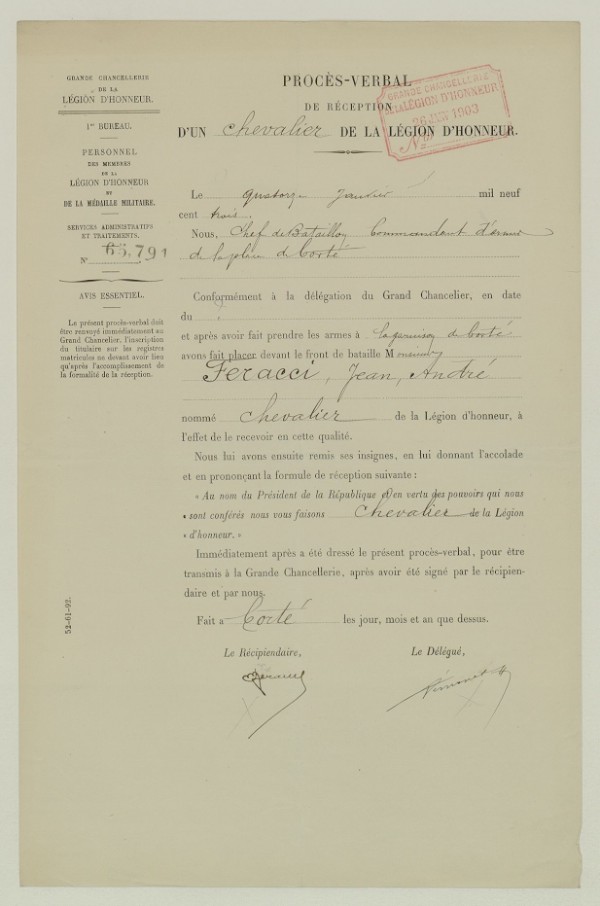 GRANDE CHANCELLERIE
DE LA
LÉGION D'HONNEUR.
1er BUREAU.
PERSONNEL
DES MEMBRES
DE LA
LÉGION D'HONNEUR
ET
DE LA MÉDAILLE MILITAIRE.
SERVICES ADMINISTRATIFS
ET TRAITEMENTS.
N° 65,791
AVIS ESSENTIEL.
Le présent procès-verbal doit
être renvoyé immédiatement au
Grand Chancelier, l'inscription
du titulaire sur les registres
matricules ne devant avoir lieu
qu'après l'accomplissement de
la formalité de la réception.
52-61-92.
PROCÈS-VERBAL
DE RÉCEPTION
D'UN Chevalier DE LA LÉGION D'HONNEUR.
GRANDE CHANCELLERIE
DE LA LÉGION D'HONNEUR
26 JAN 1903
N°
Le quatorze Janvier mil neuf
cent trois.
Nous, Chef de Bataillon Commandant d'armes
de la place de Corté
Conformément à la délégation du Grand Chancelier, en date
du
et après avoir fait prendre les armes à la garnison de Corté
avons fait placer devant le front de bataille Monsieur
Feracci, Jean, André
nommé Chevalier de la Légion d'honneur, à
l'effet de le recevoir en cette qualité.
Nous lui avons ensuite remis ses insignes, en lui donnant l'accolade
et en prononçant la formule de réception suivante :
« Au nom du Président de la République et en vertu des pouvoirs qui nous
« sont conférés nous vous faisons Chevalier de la Légion
« d'honneur. »
Immédiatement après a été dressé le présent procès-verbal, pour être
transmis à la Grande Chancellerie, après avoir été signé par le récipien-
daire et par nous.
Fait a Corté les jour, mois et an que dessus.
Le Récipiendaire,
Le Délégué,